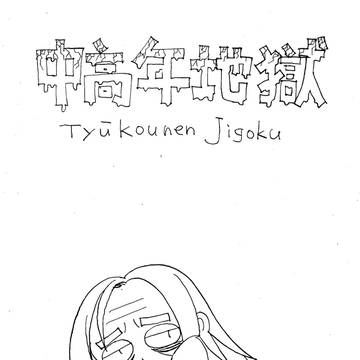 中高年地獄
Tyūkounen Jigoku